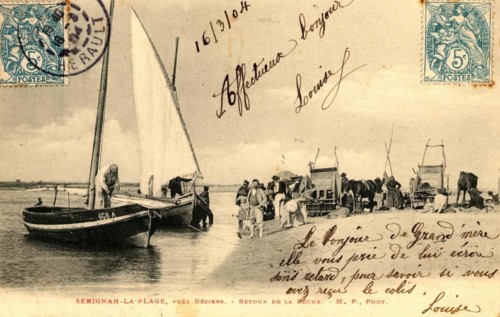 16/3/04
Affectueux bonjour
Louise
5
5
HÉRAULT
668 A
668
Le Bonjour de Grand mère
elle vous prie de lui écrire
sans retard, pour savoir si vous
avez reçu le colis.
Louise
SÉRIGNAN-LA-PLAGE, PRÈS BÉZIERS. - RETOUR DE LA PÊCHE. - M. P., PHOT.